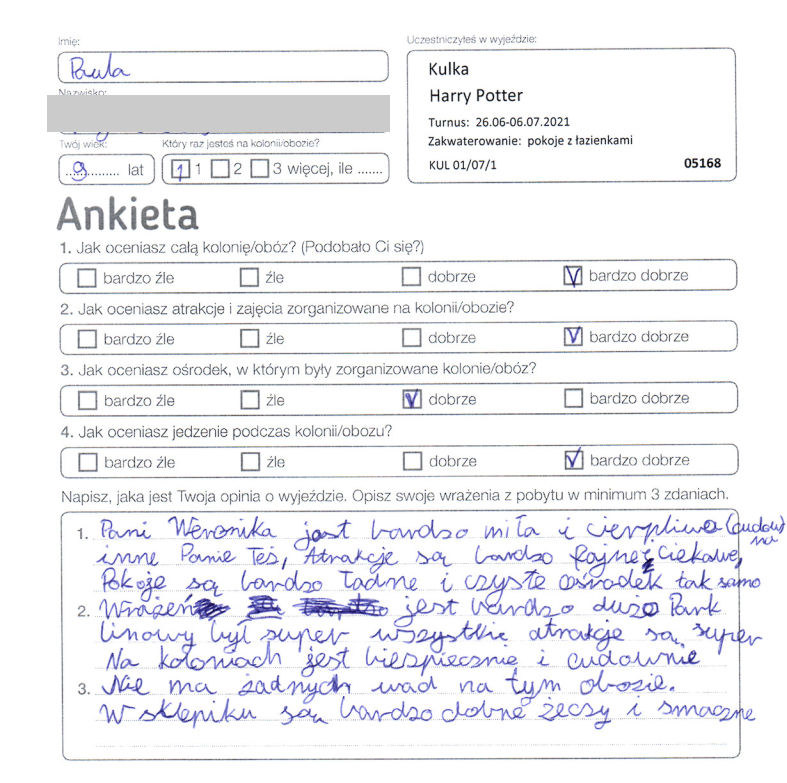 Imię:
Paula
Uczestniczyłeś w wyjeździe:
Kulka
Harry Potter
Turnus: 26.06-06.07.2021
Zakwaterowanie: pokoje z łazienkami
KUL 01/07/1 05168
Nazwisko:
Twój wiek: Który raz jesteś na kolonii/obozie?
9 lat 1 1 2 3 więcej, ile .......
Ankieta
1. Jak oceniasz całą kolonię/obóz? (Podobało Ci się?)
bardzo źle źle dobrze V bardzo dobrze
2. Jak oceniasz atrakcje i zajęcia zorganizowane na kolonii/obozie?
bardzo źle źle dobrze V bardzo dobrze
3. Jak oceniasz ośrodek, w którym były zorganizowane kolonie/obóz?
bardzo źle źle V dobrze bardzo dobrze
4. Jak oceniasz jedzenie podczas kolonii/obozu?
bardzo źle źle dobrze V bardzo dobrze
Napisz, jaka jest Twoja opinia o wyjeździe. Opisz swoje wrażenia z pobytu w minimum 3 zdaniach.
1. Pani Weronika jest bardzo miła i cierpliwa (cudowna
inne Panie Też, Atrakcje są bardzo fajne Ciekawe,
Pokoje są bardzo ładne i czyste ośrodek tak samo
2. Wrażeń jest bardzo dużo Park
linowy był super wszystkie atrakcje są super
Na koloniach jest bespiecznie i cudownie
3. Nie ma żadnych wad na tym obozie.
W sklepiku są bardzo dobne żeczy i smaczne